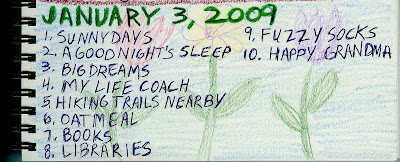 JANUARY 3, 2009
1. SUNNYDAYS
2. A GOOD NIGHT'S SLEEP
3. BIG DREAMS
4. MY LIFE COACH
5. HIKING TRAILS NEARBY
6. OATMEAL
7. BOOKS
8. LIBRARIES
9. FUZZY SOCKS
10. HAPPY GRANDMA